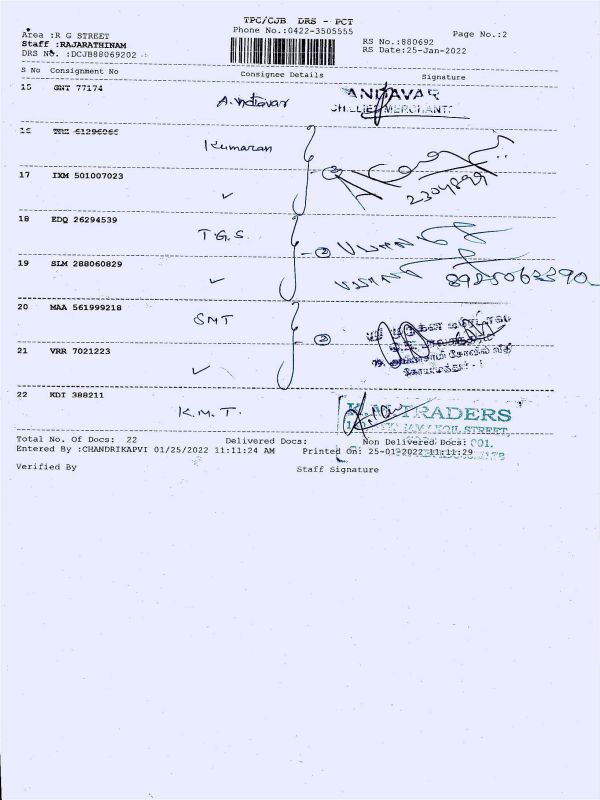 TPC/CJB DRS - PCT
Area :R G STREET
Phone No.:0422-3505555
Page No.:2
Staff :RAJARATHINAM
RS No.:880692
DRS No. :DCJB88069202
RS Date:25-Jan-2022
S No Consignment No Consignee Details Signature
15 GNT 77174 A.ndiavar ANDAVAR
CHILLIES MERCHANT
16 61296065 Kumaran
17 IXM 501007023 2304899
18 EDQ 26294539 T.G.S.
19 SLM 288060829 8925063390
20 MAA 561999218 SMT
21 VRR 7021223
22 KDI 388211 K.M.T. TRADERS
KOIL STREET,
Total No. Of Docs: 22 Delivered Docs: Non Delivered Docs: 001.
Entered By :CHANDRIKAPVI 01/25/2022 11:11:24 AM Printed On: 25-01-2022 11:11:29
Verified By Staff Signature